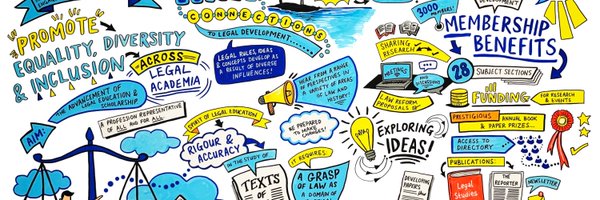 PROMOTE
EQUALITY, DIVERSITY
& INCLUSION
THE ADVANCEMENT OF
LEGAL EDUCATION &
SCHOLARSHIP
ACROSS
LEGAL
ACADEMIA
A PROFESSION REPRESENTATIVE
OF ALL AND FOR ALL
AIM:
CONNECTIONS
TO LEGAL DEVELOPMENT
LEGAL RULES, IDEAS
& CONCEPTS DEVELOP AS
A RESULT OF DIVERSE
INFLUENCES!
HEAR FROM A RANGE
OF PERSPECTIVES IN
A VARIETY OF AREAS
OF LAW AND
HISTORY
SPIRIT OF LEGAL EDUCATION
RIGOUR &
ACCURACY
IN THE STUDY OF...
TEXTS OF
BE PREPARED
TO MAKE
CHANGES!
IT REQUIRES:
A GRASP
OF LAW AS
A DOMAIN OF
EXPLORING
IDEAS!
3000
MEMBERS!
SHARING
RESEARCH
MEETINGS
AND
DISCUSSIONS
LAW REFORM
PROPOSALS
DEVELOPING
PAPERS
MEMBERSHIP
BENEFITS
28
SUBJECT SECTIONS
FUNDING
FOR RESEARCH
& EVENTS
PRESTIGIOUS
ANNUAL BOOK
& PAPER PRIZES...
ACCESS TO
DIRECTORY
PUBLICATIONS:
Legal
Studies
THE
REPORTER
NEWSLETTER